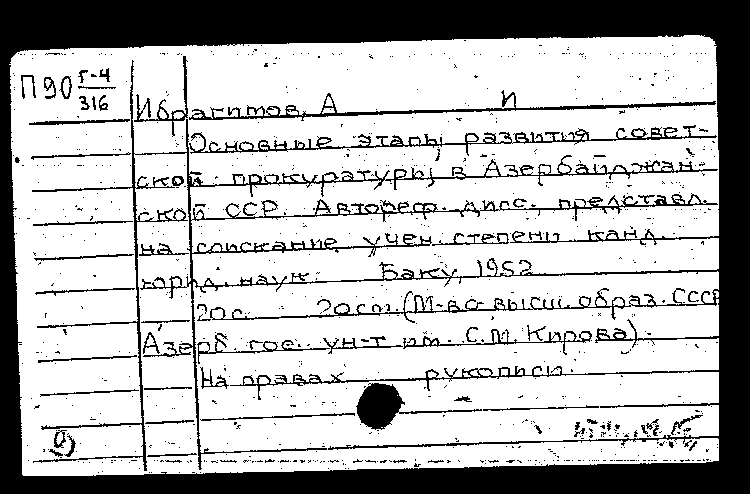 П90 Г-4
316
Ибрагимов, А И
Основные этапы развития совет-
ской прокуратуры в Азербайджан-
ской ССР. Автореф. дисс., представл.
на соискание учен. степени канд.
юрид. наук. Баку, 1952
20 с. 20 см. (М-во высш. образ. СССР
Азерб. гос. ун-т им. С.М. Кирова).
На правах рукописи.